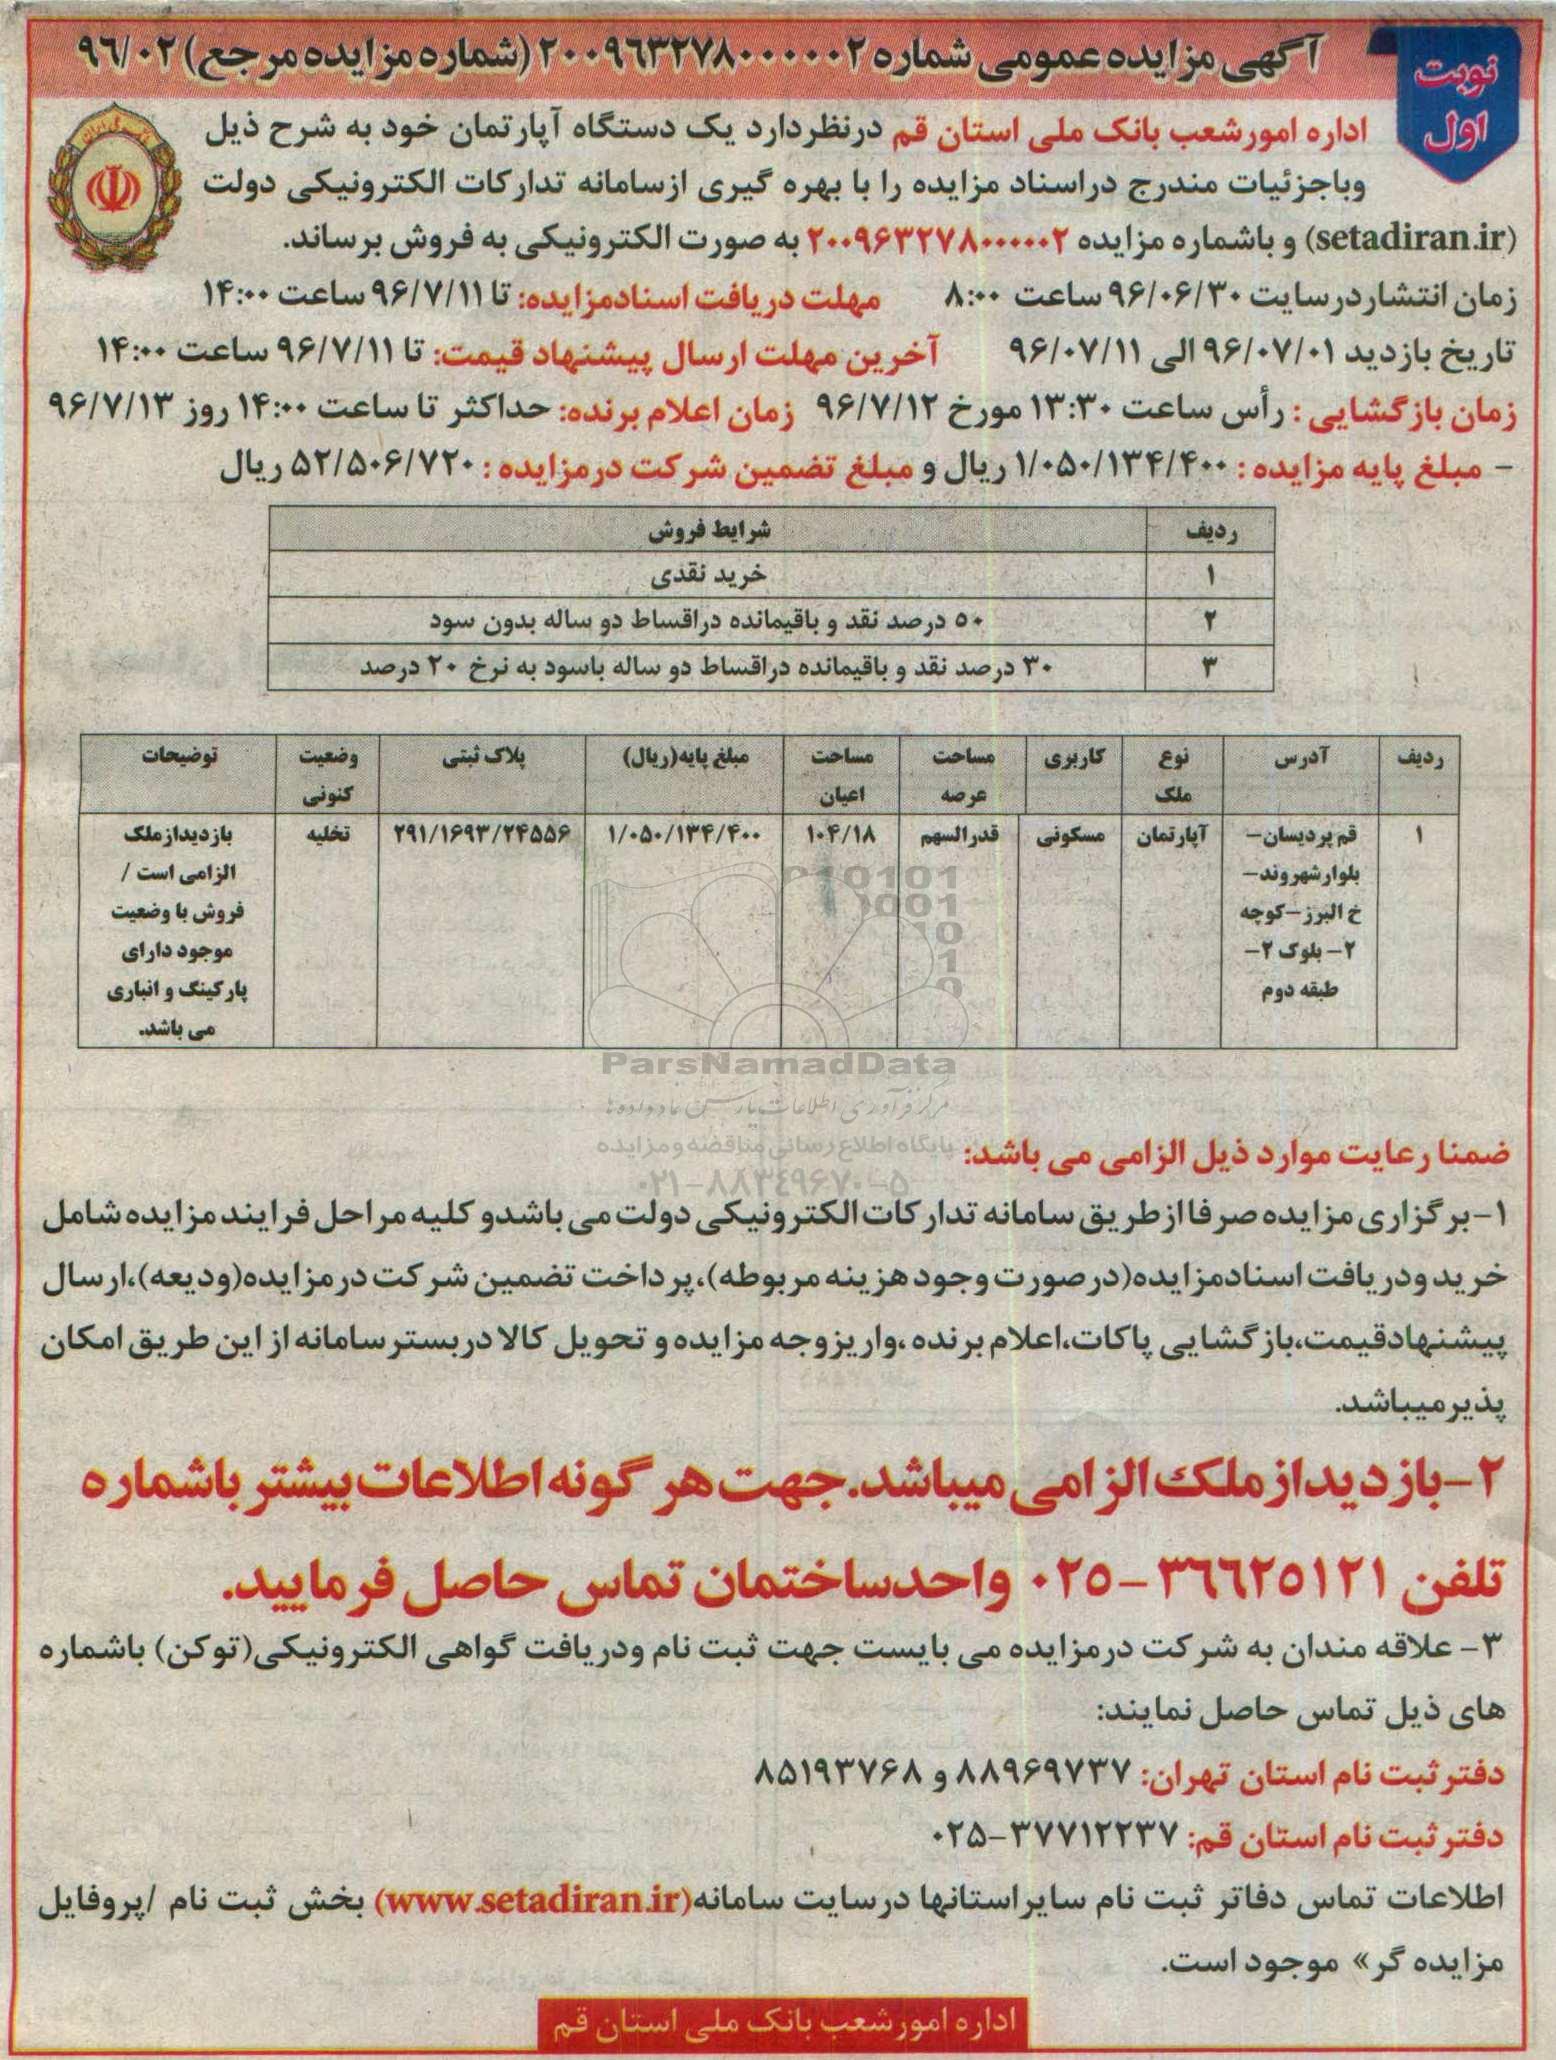 نوبت
اول
آگهی مزایده عمومی شماره ۲۰۰۹۶۳۲۷۸۰۰۰۰۰۲ (شماره مزایده مرجع) ۹۶/۰۲
اداره امورشعب بانک ملی استان قم درنظردارد یک دستگاه آپارتمان خود به شرح ذیل
وباجزئیات مندرج دراسناد مزایده را با بهره گیری ازسامانه تدارکات الکترونیکی دولت
(setadiran.ir) و باشماره مزایده ۲۰۰۹۶۳۲۷۸۰۰۰۰۰۲ به صورت الکترونیکی به فروش برساند.
زمان انتشاردرسایت ۹۶/۰۶/۳۰ ساعت ۸:۰۰ مهلت دریافت اسنادمزایده: تا ۹۶/۷/۱۱ ساعت ۱۴:۰۰
تاریخ بازدید ۹۶/۰۷/۰۱ الی ۹۶/۰۷/۱۱ آخرین مهلت ارسال پیشنهاد قیمت: تا ۹۶/۷/۱۱ ساعت ۱۴:۰۰
زمان بازگشایی : رأس ساعت ۱۳:۳۰ مورخ ۹۶/۷/۱۲ زمان اعلام برنده: حداکثر تا ساعت ۱۴:۰۰ روز ۹۶/۷/۱۳
- مبلغ پایه مزایده : ۱/۰۵۰/۱۳۴/۴۰۰ ریال و مبلغ تضمین شرکت درمزایده : ۵۲/۵۰۶/۷۲۰ ریال
ردیف شرایط فروش
۱ خرید نقدی
۲ ۵۰ درصد نقد و باقیمانده دراقساط دو ساله بدون سود
۳ ۳۰ درصد نقد و باقیمانده دراقساط دو ساله باسود به نرخ ۲۰ درصد
ردیف آدرس نوع ملک کاربری مساحت عرصه مساحت اعیان مبلغ پایه(ریال) پلاک ثبتی وضعیت کنونی توضیحات
۱ قم پردیسان- آپارتمان مسکونی قدرالسهم ۱۰۴/۱۸ ۱/۰۵۰/۱۳۴/۴۰۰ ۲۹۱/۱۶۹۳/۲۴۵۵۶ تخلیه بازدیدازملک
بلوارشهروند- الزامی است /
خ البرز-کوچه فروش با وضعیت
۲- بلوک ۲- موجود دارای
طبقه دوم پارکینگ و انباری
می باشد.
ParsNamadData
مرکز فرآوری اطلاعات پارس نماد داده ها
پایگاه اطلاع رسانی مناقصه و مزایده
۰۲۱-۸۸۳۴۹۶۷۰-۵
ضمنا رعایت موارد ذیل الزامی می باشد:
۱-برگزاری مزایده صرفا ازطریق سامانه تدارکات الکترونیکی دولت می باشدو کلیه مراحل فرایند مزایده شامل
خرید ودریافت اسنادمزایده(درصورت وجود هزینه مربوطه)،پرداخت تضمین شرکت درمزایده(ودیعه)،ارسال
پیشنهادقیمت،بازگشایی پاکات،اعلام برنده ،واریزوجه مزایده و تحویل کالا دربسترسامانه از این طریق امکان
پذیرمیباشد.
۲-بازدیدازملک الزامی میباشد.جهت هر گونه اطلاعات بیشتر باشماره
تلفن ۳۶۶۲۵۱۲۱-۰۲۵ واحدساختمان تماس حاصل فرمایید.
۳- علاقه مندان به شرکت درمزایده می بایست جهت ثبت نام ودریافت گواهی الکترونیکی(توکن) باشماره
های ذیل تماس حاصل نمایند:
دفترثبت نام استان تهران: ۸۸۹۶۹۷۳۷ و ۸۵۱۹۳۷۶۸
دفترثبت نام استان قم: ۳۷۷۱۲۲۳۷-۰۲۵
اطلاعات تماس دفاتر ثبت نام سایراستانها درسایت سامانه(www.setadiran.ir) بخش ثبت نام /پروفایل
مزایده گر» موجود است.
اداره امورشعب بانک ملی استان قم